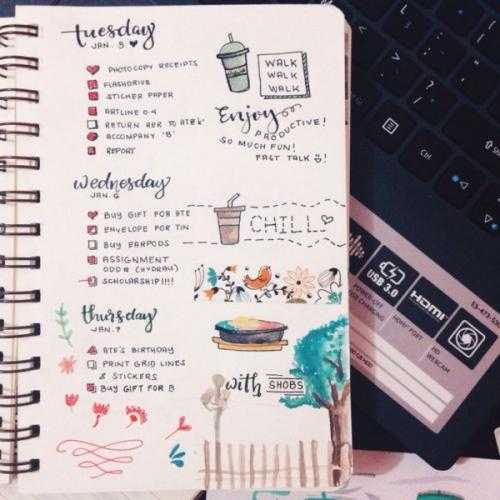 tuesday
JAN. 5
PHOTOCOPY RECEIPTS
FLASHDRIVE
STICKER PAPER
ARTLINE 0.4
RETURN RER TO ATE K
ACCOMPANY 'B'
REPORT
WALK
WALK
WALK
Enjoy
PRODUCTIVE!
SO MUCH FUN!
FAST TALK
wednesday
JAN. 6
BUY GIFT FOR ATE
ENVELOPE FOR TIN
BUY EARPODS
ASSIGNMENT
SCHOLARSHIP!!!
CHILL
thursday
JAN. 7
ATE'S BIRTHDAY
PRINT GRID LINES
& STICKERS
BUY GIFT FOR B
with SHOBS
USB 3.0
POWER-OFF
USB CHARGING
HDMI
HDMI® PORT
HD
WEBCAM
Ctrl